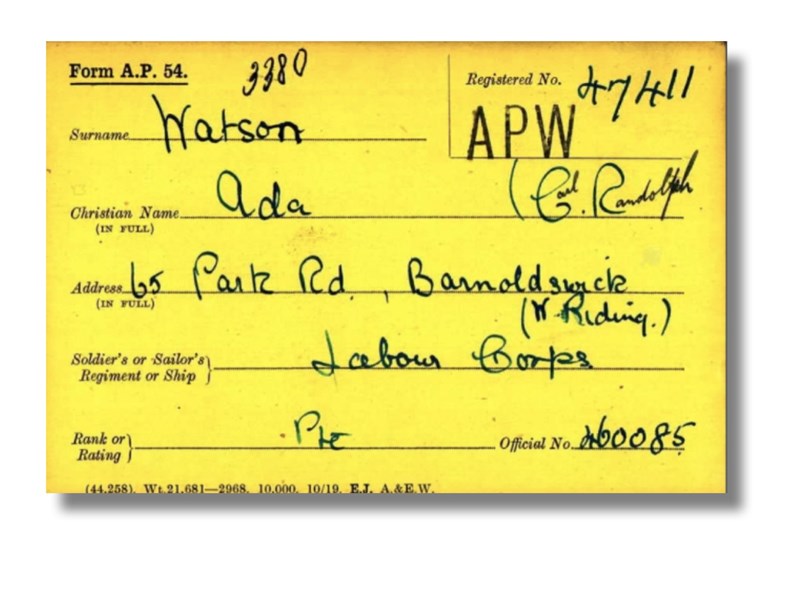 Form A.P. 54.
3380
Registered No. 47411
APW
Surname Watson
Christian Name Ada (C. Randolph
(IN FULL)
Address 65 Park Rd., Barnoldswick
(IN FULL)
(W. Riding.)
Soldier's or Sailor's } Labour Corps
Regiment or Ship
Rank or } Pte Official No. 460085
Rating
(44,258). Wt. 21,681—2968. 10,000. 10/19. E.J. A.&E.W.